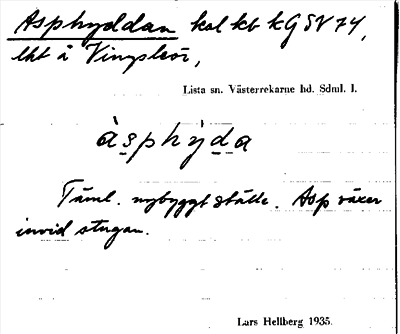 Asphyddan kal kb kGSV74,
lht å Vingsleör,
Lista sn. Västerrekarne hd. Sdml. l.
àsphy̆da
Täml. nybyggt ställe. Asp växer
invid stugan.
Lars Hellberg 1935.